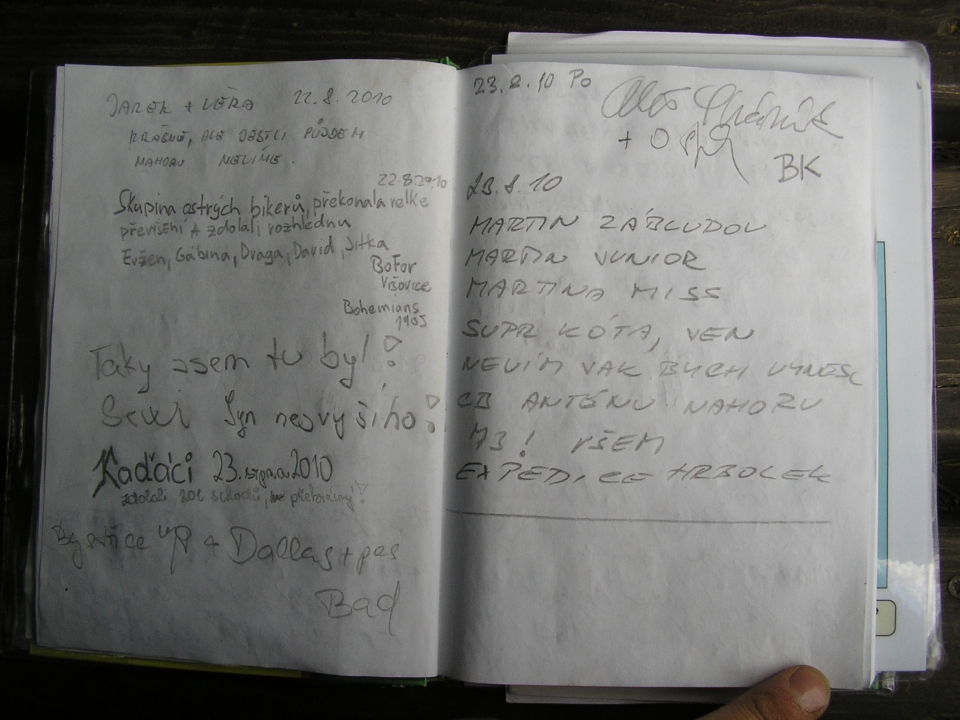 JAREK + VĚRA 22.8.2010
KRÁSNÉ, ALE JESTLI PŮJDEM
NAHORU NEVÍME.
22.8.2010
Skupina ostrých bikerů, překonala velké
převíšení + zdolali rozhlednu
Evžen, Gábina, Draga, David, Jitka
BoFor
Višovice
Bohemians
1905
Taky jsem tu byl!
Syn nejvyšího!
Kaďáci 23. srpna 2010
zdolali 201 schodů,
Bystřice + Dallas + pes
Bad
23.8.10 Po
+ 
BK
23.8.10
MARTIN ZÁBLUDOV
MARTIN JUNIOR
MARTINA MISS
SUPR KÓTA, JEN
NEVÍM JAK BYCH VYNESL
CB ANTÉNU NAHORU
73! VŠEM
EXPEDICE HRBOLEK